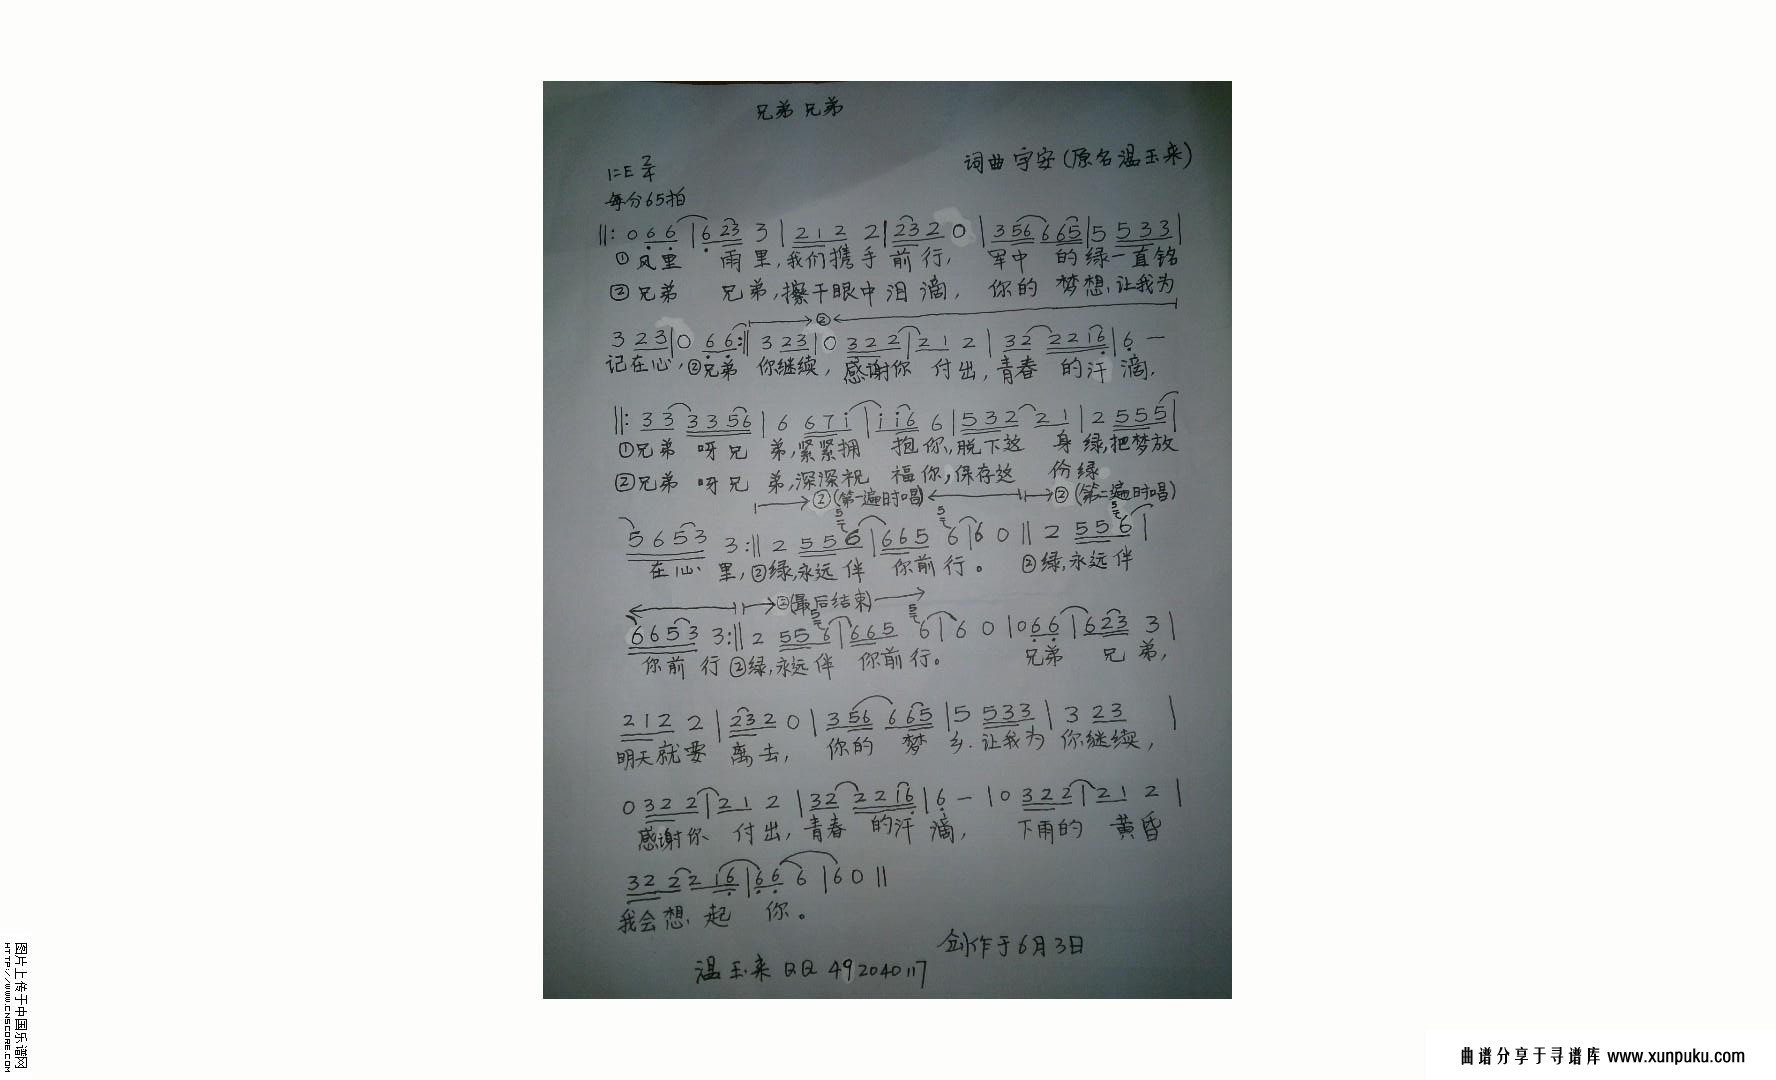 兄弟 兄弟
词曲 宇安(原名温玉来)
1=E 2/4
每分65拍
‖: 0 6 6 | 6 23 3 | 2 1 2 2 | 23 2 0 | 3 56 6 65 | 5 5 3 3 |
①风里 雨里,我们携手前行, 军中 的绿一直铭
②兄弟 兄弟,擦干眼中泪滴, 你的 梦想,让我为
②
3 2 3 | 0 6 6 :‖ 3 23 | 0 3 2 2 | 2 1 2 | 32 2 2 16 | 6 —
记在心,②兄弟 你继续, 感谢你 付出,青春 的汗滴,
‖: 3 3 3 3 56 | 6 6 7 i | i i6 6 | 5 3 2 2 1 | 2 5 5 5 |
①兄弟 呀兄 弟,紧紧拥 抱你,脱下这 身绿,把梦放
②兄弟 呀兄 弟,深深祝 福你,保存这 份绿
②(第一遍时唱) ②(第二遍时唱)
5 6 53 3 :‖ 2 5 5 6 | 6 6 5 6 | 6 0 ‖ 2 5 5 6 |
在心 里,②绿,永远伴 你前行。 ②绿,永远伴
②(最后结束)
6 6 5 3 3 :‖ 2 55 6 | 6 6 5 6 | 6 0 | 0 6 6 | 6 23 3 |
你前 行②绿,永远伴 你前行。 兄弟 兄弟,
2 1 2 2 | 23 2 0 | 3 56 6 65 | 5 5 3 3 | 3 2 3 |
明天就要 离去, 你的 梦 乡.让我为 你继续,
0 3 2 2 | 2 1 2 | 32 2 2 16 | 6 — | 0 3 2 2 | 2 1 2 |
感谢你 付出,青春 的汗滴, 下雨的 黄昏
32 2 2 16 | 6 6 6 | 6 0 ‖
我会想 起 你。
创作于6月3日
温玉来 QQ 492040117
图片上传于中国乐谱网
HTTP://WWW.CNSCORE.COM
曲谱分享于寻谱库 www.xunpuku.com